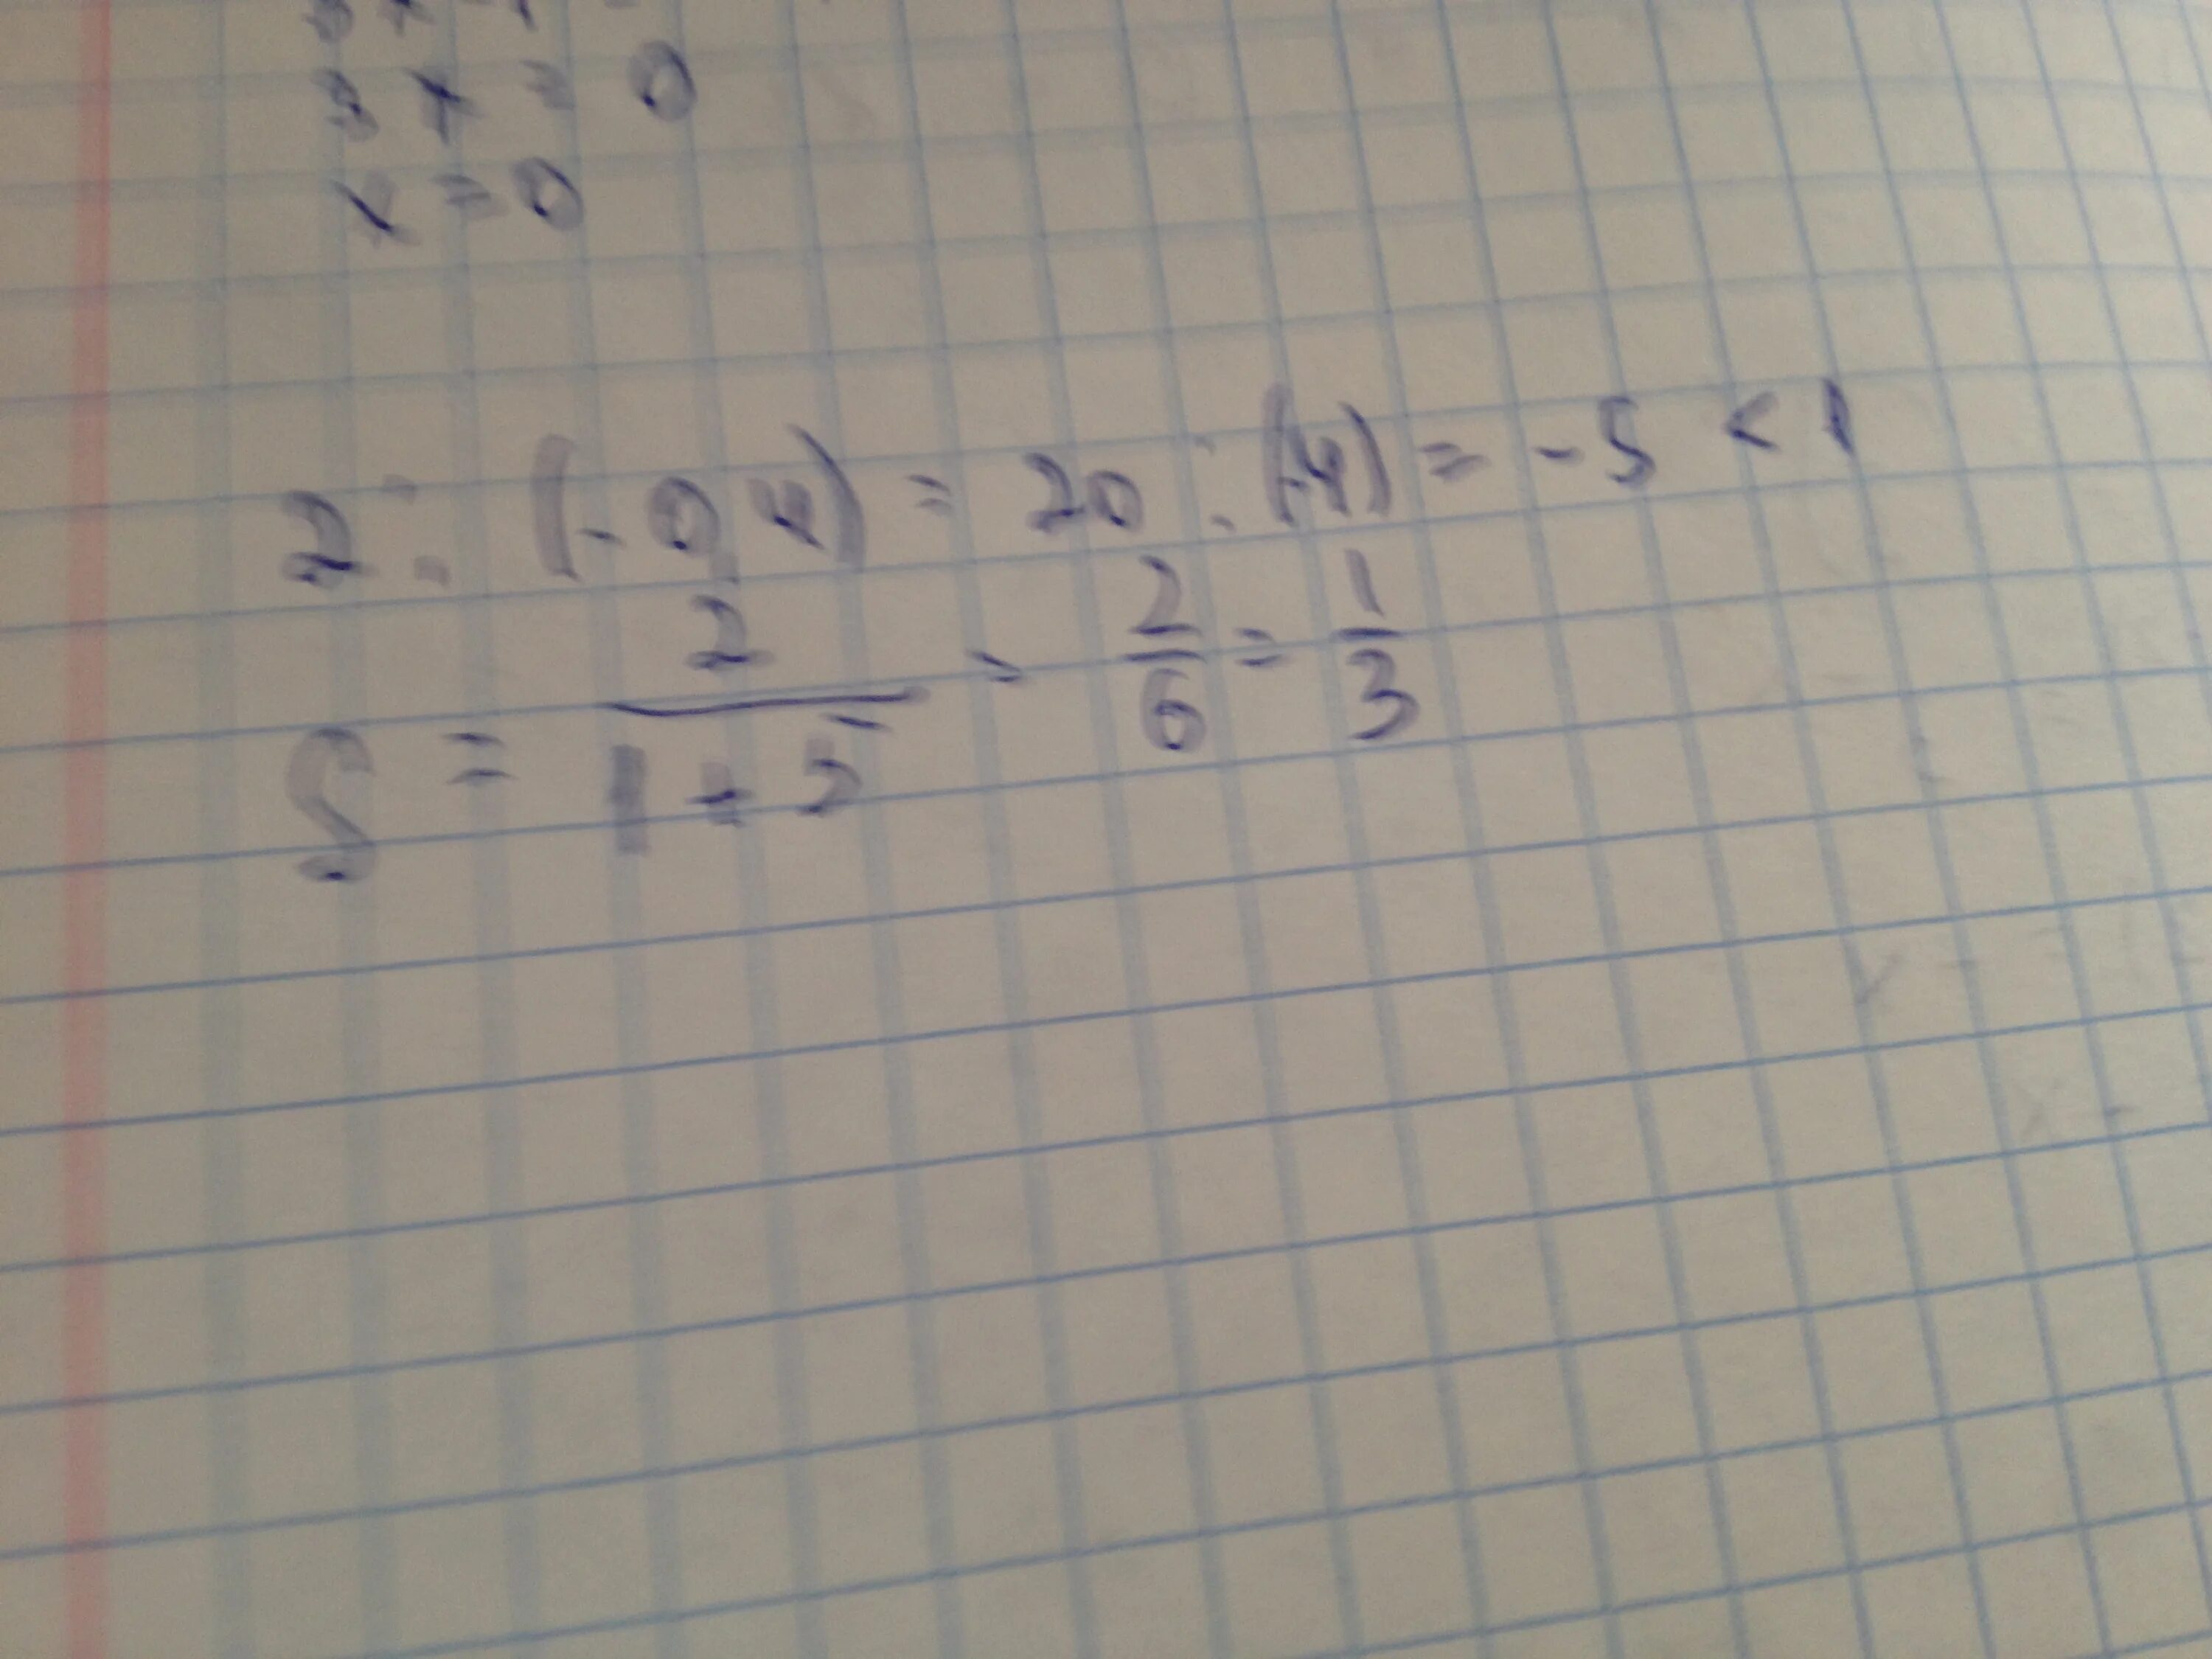 3x = 0
x = 0
2 : (-0,4) = 20 : (-4) = -5 < 1
S = 2/(1+5) = 2/6 = 1/3